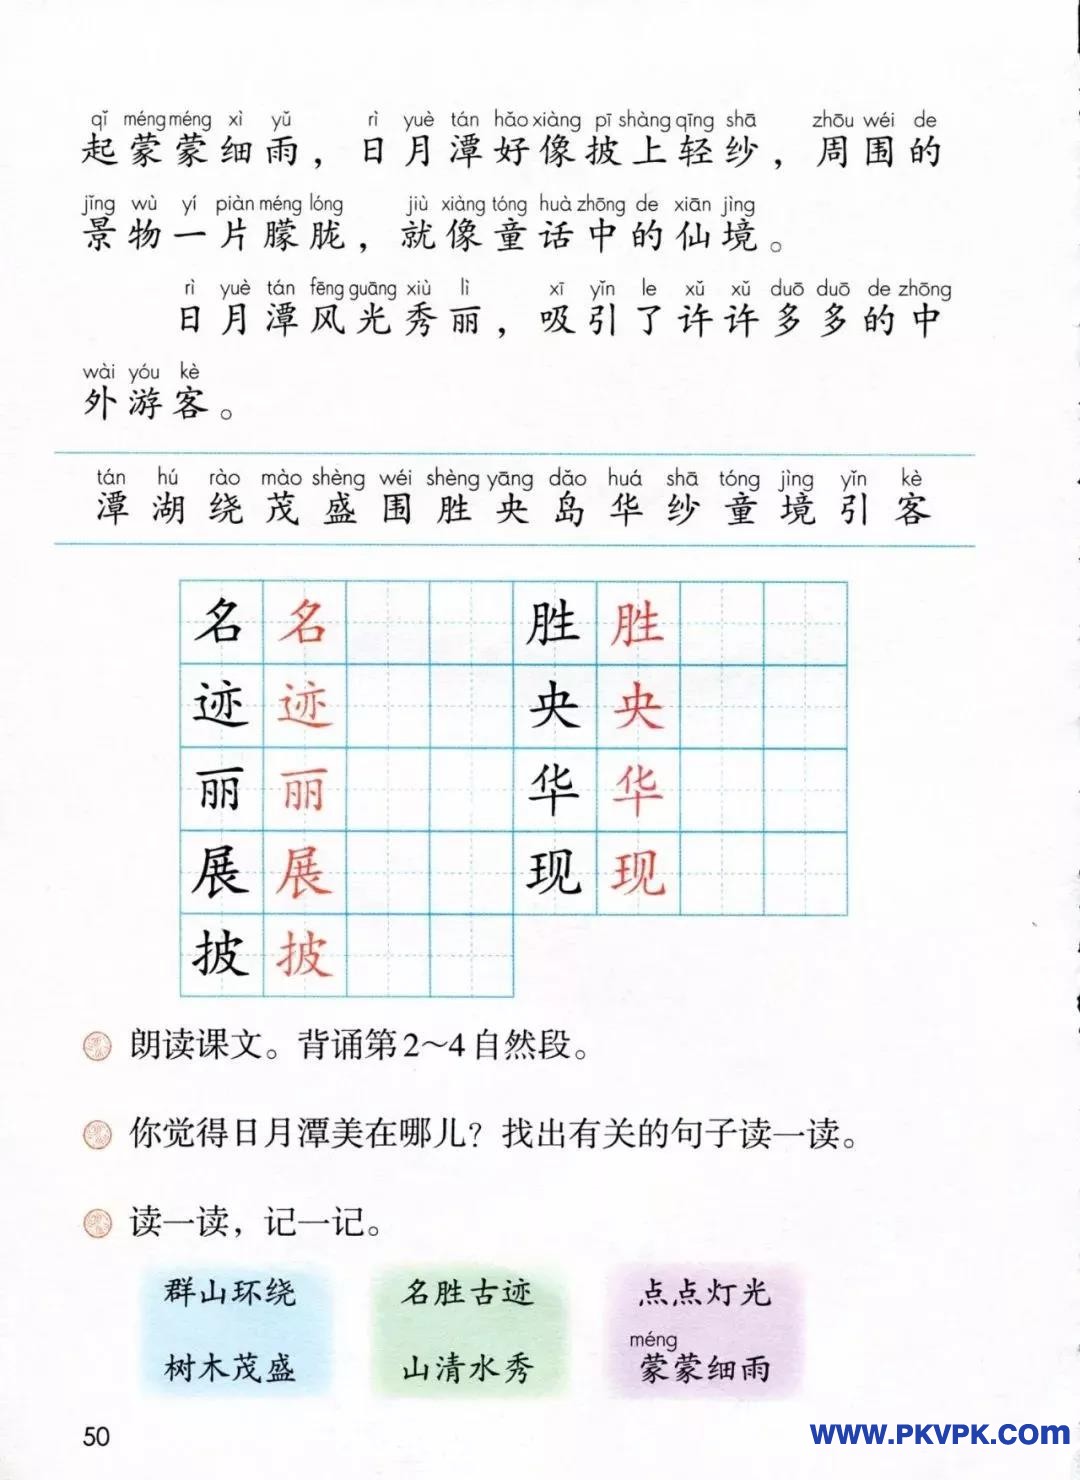 qǐ méng méng xì yǔ rì yuè tán hǎo xiàng pī shàng qīng shā zhōu wéi de
起蒙蒙细雨，日月潭好像披上轻纱，周围的
jǐng wù yí piàn méng lóng jiù xiàng tóng huà zhōng de xiān jìng
景物一片朦胧，就像童话中的仙境。
rì yuè tán fēng guāng xiù lì xī yǐn le xǔ xǔ duō duō de zhōng
日月潭风光秀丽，吸引了许许多多的中
wài yóu kè
外游客。
tán hú rào mào shèng wéi shèng yāng dǎo huá shā tóng jìng yǐn kè
潭湖绕茂盛围胜央岛华纱童境引客
名 名 胜 胜
迹 迹 央 央
丽 丽 华 华
展 展 现 现
披 披
朗读课文。背诵第2～4自然段。
你觉得日月潭美在哪儿？找出有关的句子读一读。
读一读，记一记。
群山环绕 名胜古迹 点点灯光
méng
树木茂盛 山清水秀 蒙蒙细雨
50
www.PKVPK.com